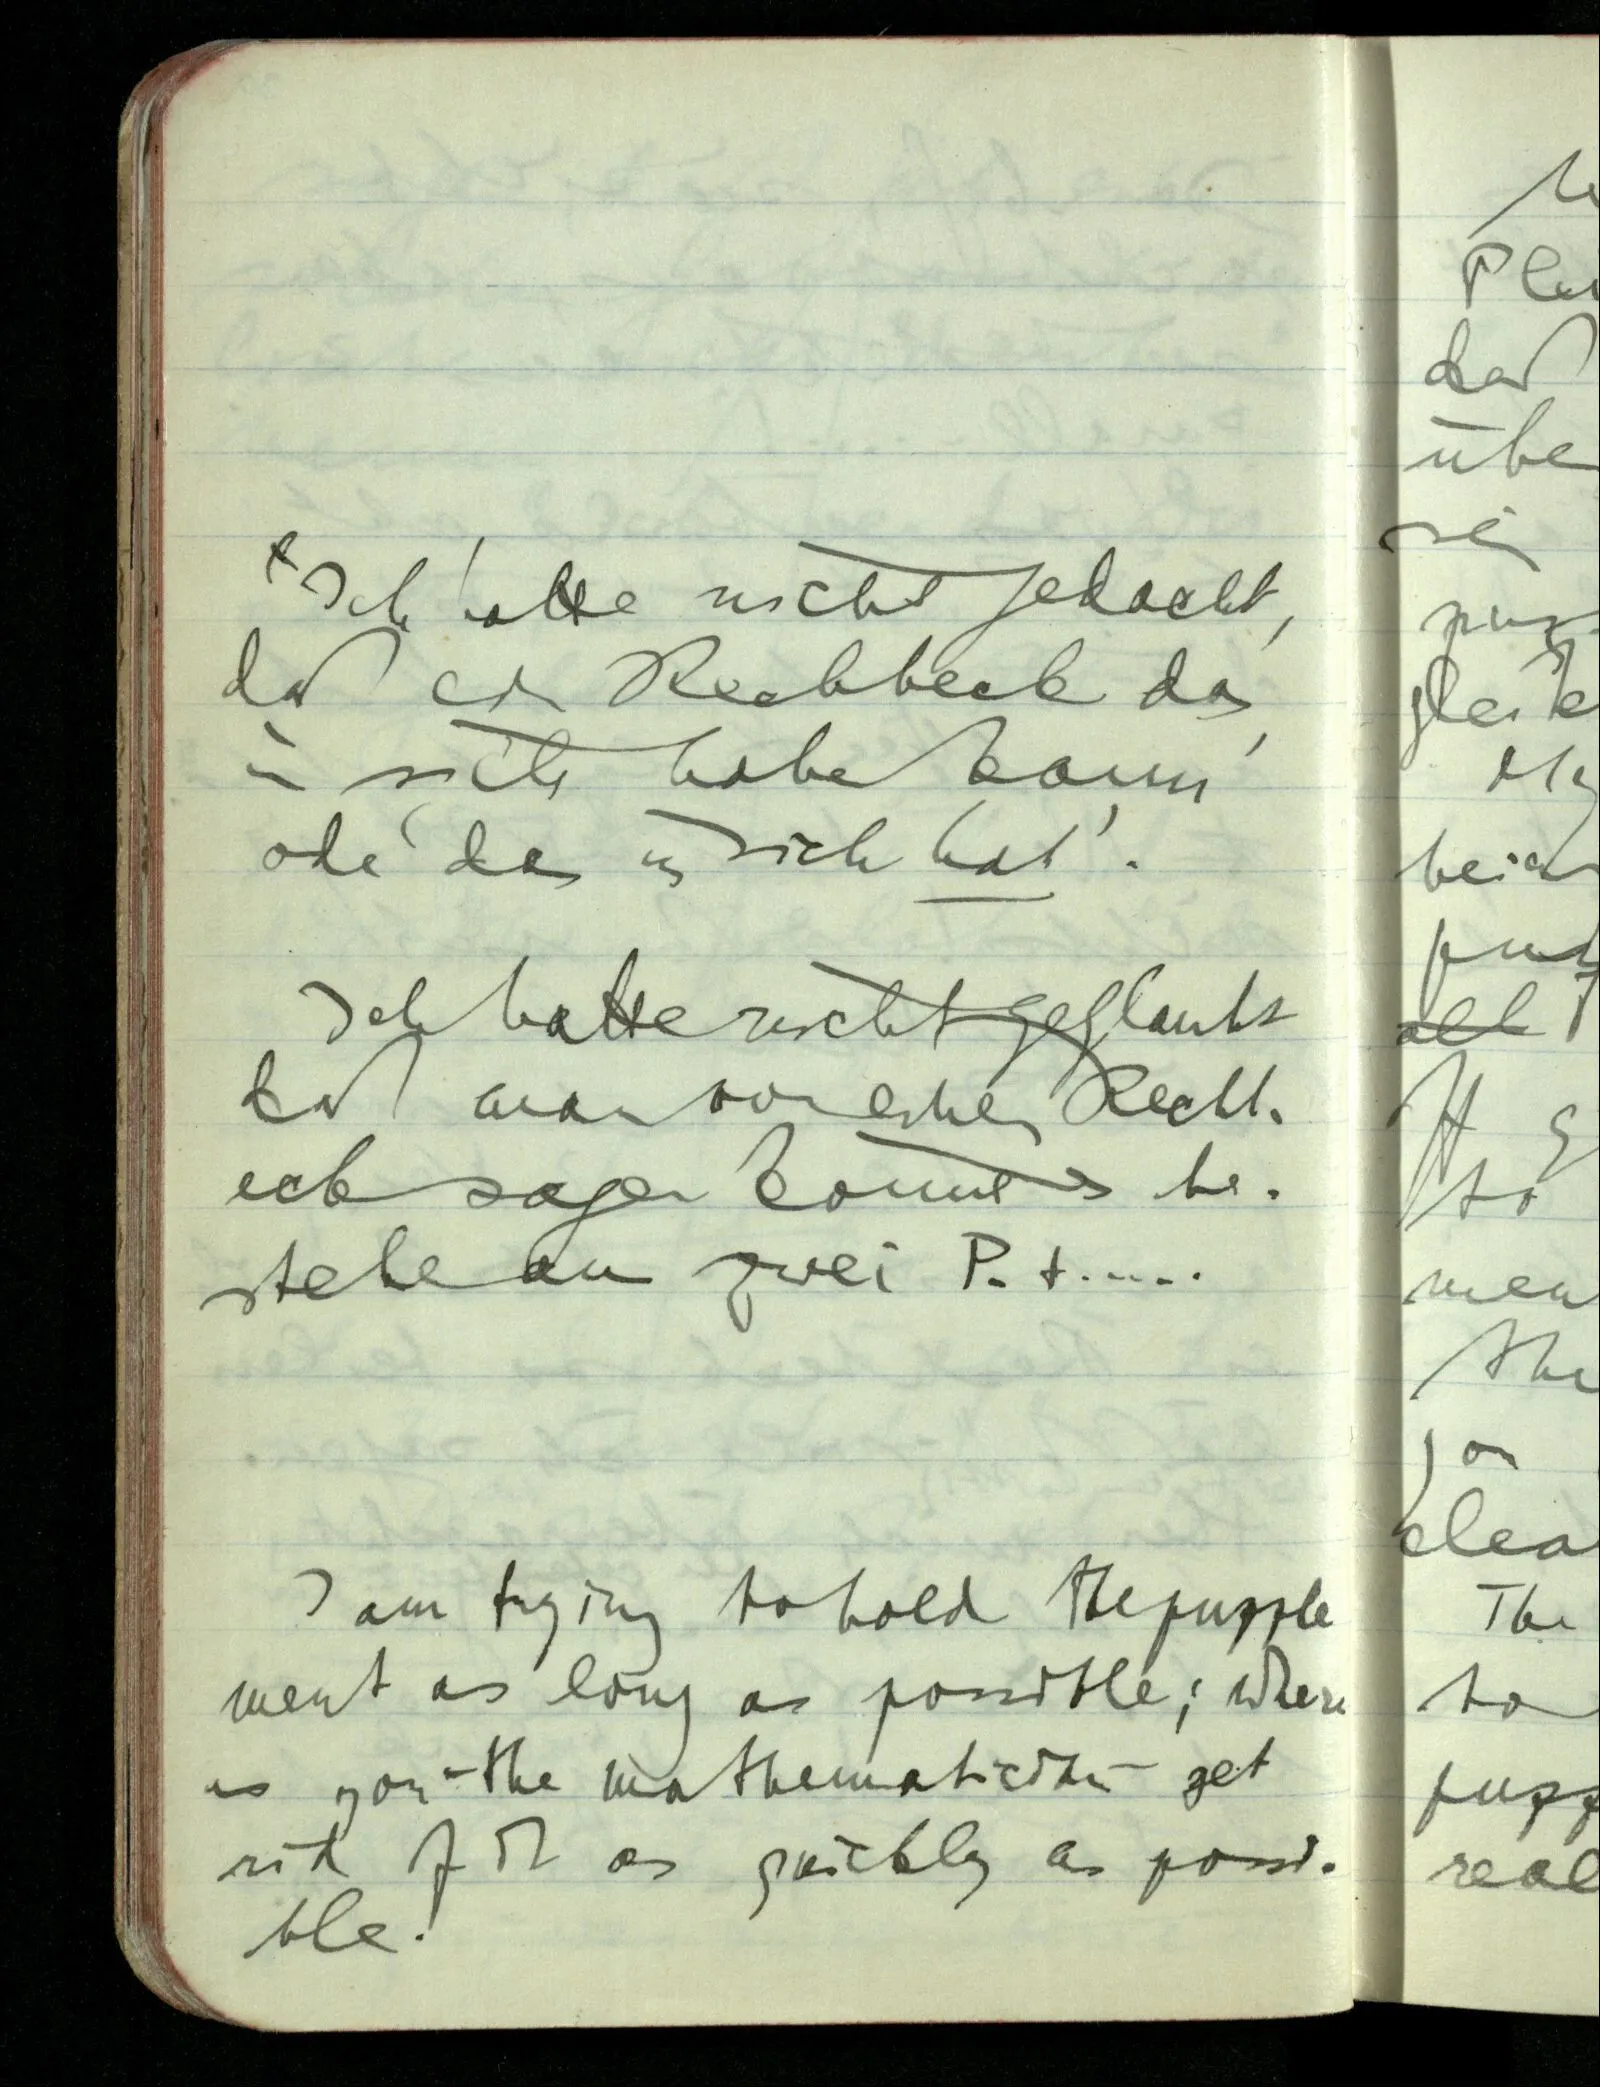 "Ich hatte nicht gedacht,
daß ein Rechteck das
in sich haben kann'
oder 'das in sich hat'.
Ich hatte nicht geglaubt
daß man von einem Recht-
eck sagen könnte es be-
stehe aus zwei P. + .....
I am trying to hold the puzzle
ment as long as possible; where
as you – the mathematician – get
rid of it as quickly as possi-
ble.
Pla
daß
übe
puz
all
to
men
the
clea
The
to
puzz
real